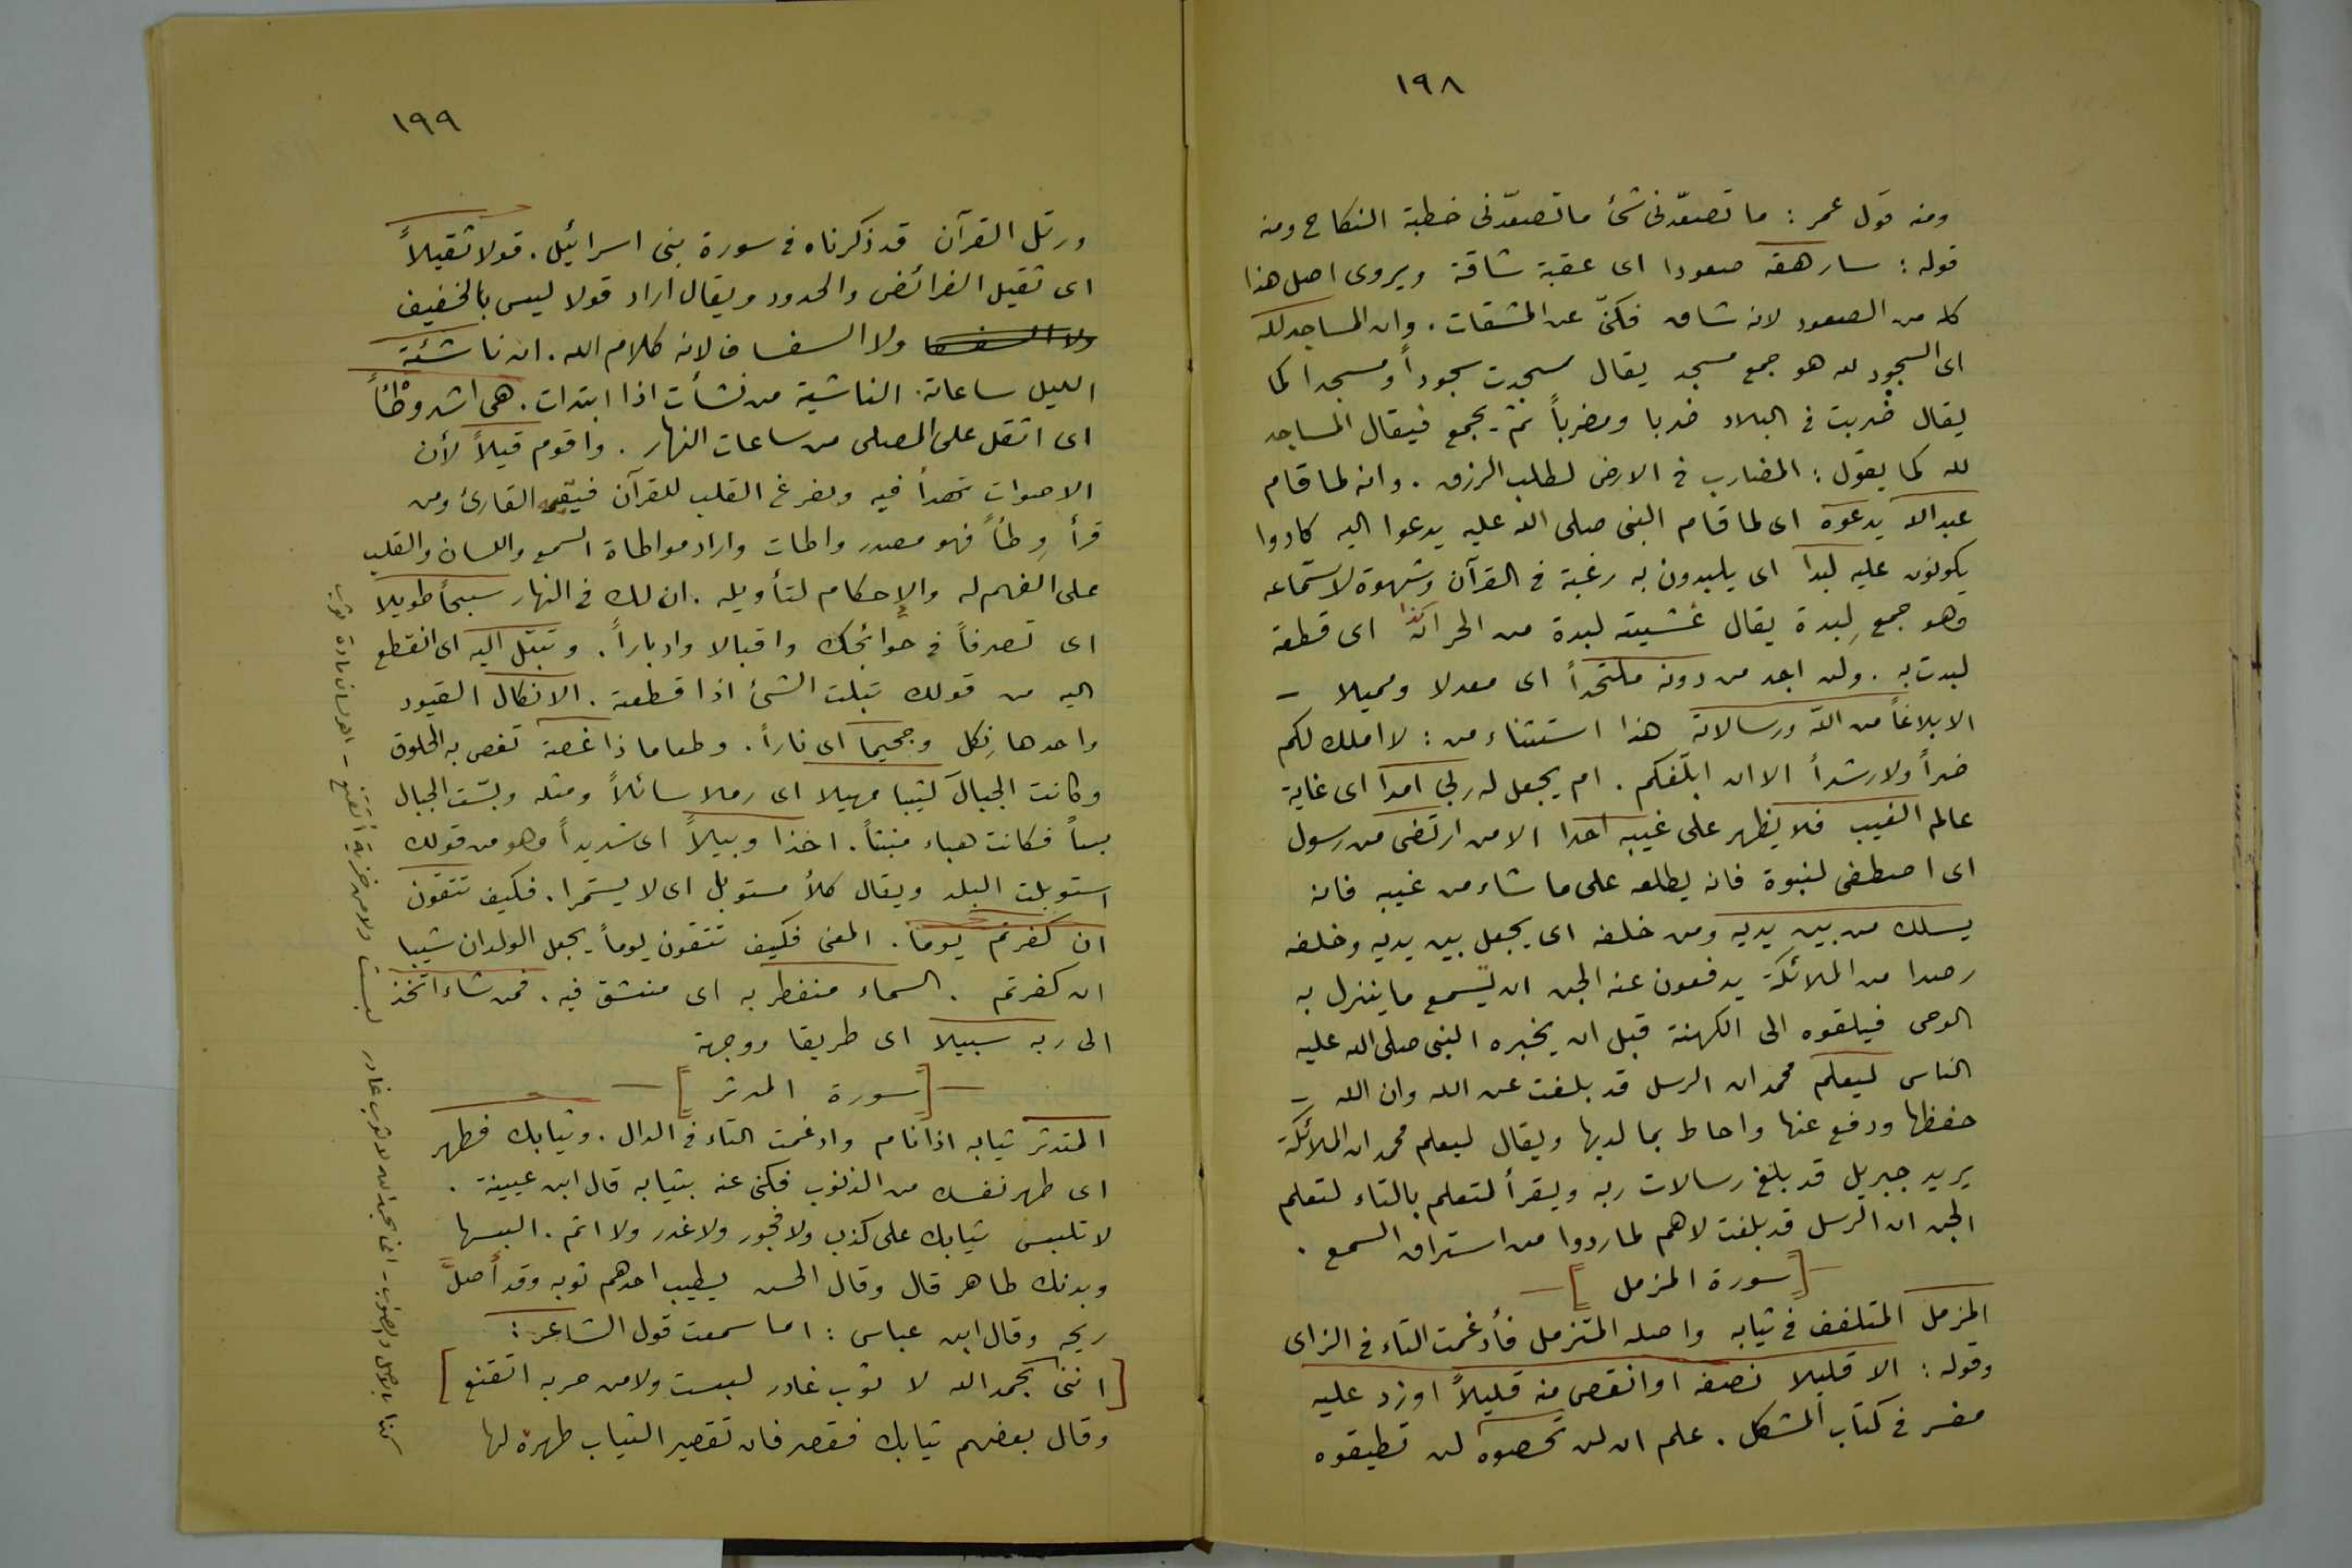 ١٩٨
ومنه قول عمر : ما تصعّدنى شئ ما تصعّدنى خطبة النكاح ومنه
قوله : سارهقه صعودا اى عقبة شاقة ويروى اصل هذا
كله من الصعود لانه شاق فكنّى عن المشقات . وان المساجد لله
اى السجود لله هو جمع مسجد يقال سجدت سجوداً ومسجدا كما
يقال ضربت فى البلاد ضربا ومضرباً ثم يجمع فيقال المساجد
لله كما يقول : المضارب فى الارض لطلب الرزق . وانه لما قام
عبد الله يدعوه اى لما قام النبى صلى الله عليه يدعوا اليه كادوا
يكونون عليه لبدا اى يلبدون به رغبة فى القرآن وشهوة لاستماعه
وهو جمع لِبدة يقال غشيته لبدة من الحر كذا اى قطعة
لبدت به . ولن اجد من دونه ملتحداً اى معدلا ومميلا –
الا بلاغاً من الله ورسالاته هذا استثناء من : لا املك لكم
ضراً ولا رشداً الا ان ابلّغكم . ام يجعل له ربى امدا اى غاية
عالم الغيب فلا يظهر على غيبه احدا الا من ارتضى من رسول
اى اصطفى لنبوة فانه يطلعه على ما شاء من غيبه فانه
يسلك من بين يديه ومن خلفه اى يجعل بين يديه وخلفه
رصدا من الملائكة يدفعون عنه الجن ان يسمع ما ينزل به
الوحى فيلقوه الى الكهنة قبل ان يخبره النبى صلى الله عليه
الناس ليعلم محمد ان الرسل قد بلغت عن الله وان الله –
حفظها ودفع عنها واحاط بما لديها ويقال ليعلم محمد ان الملائكة
يريد جبريل قد بلغ رسالات ربه ويقرأ لتعلم بالتاء لتعلم
الجن ان الرسل قد بلغت لاهم لما ردوا من استراق السمع .
— [ سورة المزمل ] —
المزمل المتلفف فى ثيابه واصله المتزمل فأدغمت التاء فى الزاى
وقوله : الا قليلا نصفه او انقص منه قليلاً او زد عليه
مفسر فى كتاب المشكل . علم ان لن تحصوه لن تطيقوه
١٩٩
ورتل القرآن قد ذكرناه فى سورة بنى اسرائيل . قولا ثقيلاً
اى ثقيل الفرائض والحدود ويقال اراد قولا ليس بالخفيف
ولا السفساف لانه كلام الله . ان ناشئة
الليل ساعاته : الناشية من نشأت اذا ابتدات . هى اشد وطْئاً
اى اثقل على المصلى من ساعات النهار . واقوم قيلاً لأن
الاصوات تهدأ فيه ويفرغ القلب للقرآن القارئ ومن
قرأ وِطأً فهو مصدر واطات واراد مواطاة السمع واللسان والقلب
على الفهم له والإحكام لتأويله . ان لك فى النهار سبحاً طويلا
اى تصرفاً فى حوائجك واقبالا وادباراً . وتبتل اليه اى انقطع
اليه من قولك تبلت الشئ اذا قطعته . الانكال القيود
واحدها نِكل وجحيما اى ناراً . وطعاما ذا غصة تغص به الحلوق
وكانت الجبالَ كثيبا مهيلا اى رملا سائلاً ومثله وبسّت الجبال
بساً فكانت هباء منبثاً . اخذا وبيلاً اى شديداً وهو من قولك
استوبلت البلد ويقال كلأ مستوبل اى لا يستمرا . فكيف تتقون
ان كفرتم يوما . المعنى فكيف تتقون يوماً يجعل الولدان شيبا
ان كفرتم . السماء منفطر به اى منشق فيه . فمن شاء اتخذ
الى ربه سبيلا اى طريقا ووجهة
— [ سورة المدثر ] —
المتدثر ثيابه اذا نام وادغمت التاء فى الدال . وثيابك فطهر
اى طهر نفسك من الذنوب فكنى عنه بثيابه قال ابن عيينة .
لا تلبس ثيابك على كذب ولا فجور ولا غدر ولا اثم . البسها
وبدنك طاهر قال وقال الحسن يطيب احدهم ثوبه وقد أصلّ
ريحه وقال ابن عباس : اما سمعت قول الشاعر :
[ اننى بحمد الله لا ثوب غادر لبست ولا من خربه اتقنع ]
وقال بعضهم ثيابك فقصر فان تقصير الثياب طهرة لها
كذا بالاصل والصواب - انى بحمد الله لا ثوب غادر
لبست ولا من خزية أتقنع - اهـ لسان مادة ثوب